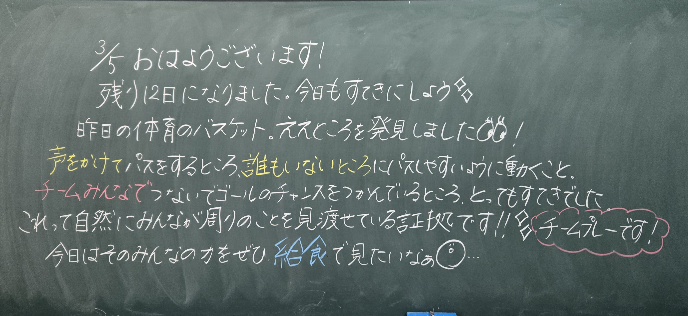 3/5 おはようございます!
残り12日になりました。今日もすてきにしよう
昨日の体育のバスケット。ええところを発見しました!
声をかけてパスをするところ、誰もいないところにパスしやすいように動くこと。
チームみんなでつないでゴールのチャンスをつかんでいるところ。とってもすてきでした。
これって自然にみんなが周りのことを見渡せている証拠です!! チームプレーです!
今日はそのみんなの力をぜひ給食で見たいなぁ…